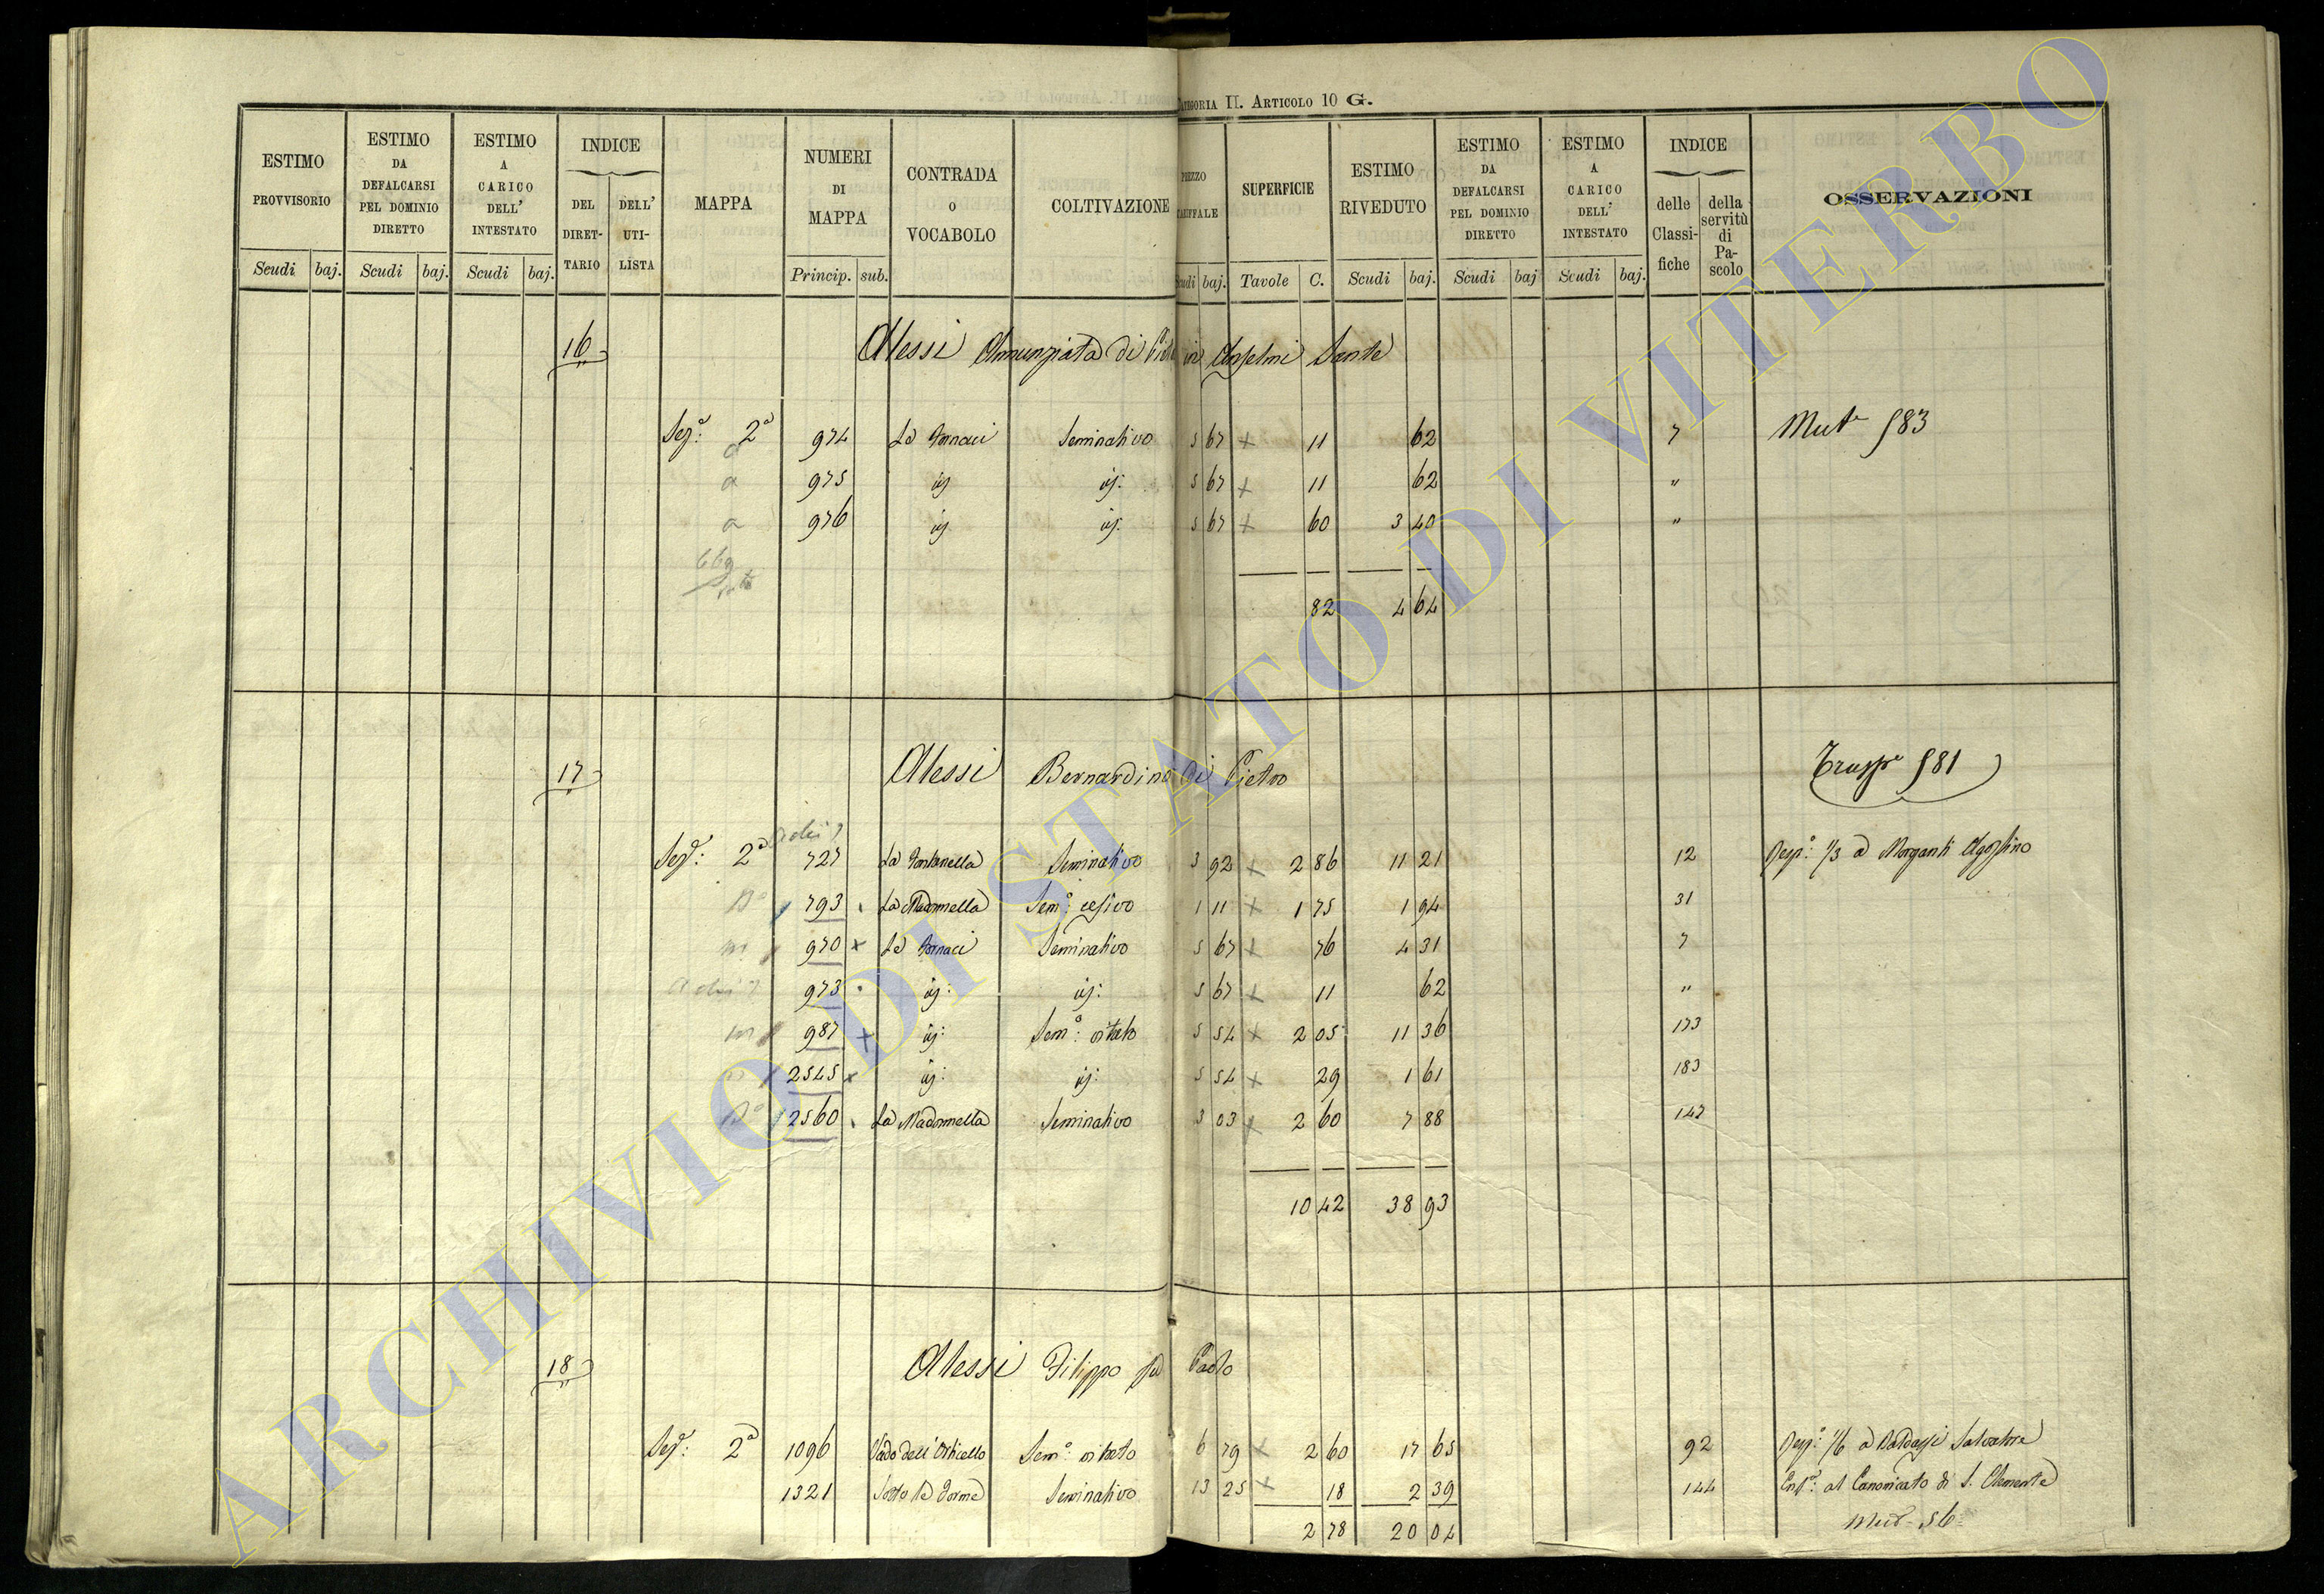 CATEGORIA II. ARTICOLO 10 G.
ESTIMO PROVVISORIO Scudi baj.
ESTIMO DA DEFALCARSI PEL DOMINIO DIRETTO Scudi baj.
ESTIMO A CARICO DELL' INTESTATO Scudi baj.
INDICE DEL DIRETTARIO DELL' UTILISTA
MAPPA
NUMERI DI MAPPA Princip. sub.
CONTRADA O VOCABOLO
COLTIVAZIONE
PREZZO TARIFFALE Scudi baj.
SUPERFICIE Tavole C.
ESTIMO RIVEDUTO Scudi baj.
ESTIMO DA DEFALCARSI PEL DOMINIO DIRETTO Scudi baj
ESTIMO A CARICO DELL' INTESTATO Scudi baj.
INDICE delle Classifiche della servitù di Pascolo
OSSERVAZIONI
16 Alessi Annunziata di in Anselmi Sante
Sez.e 2a 974 Le Fornaci Seminativo 5 67 11 62 7 583
a 975 id id: 5 67 11 62 "
a 976 id id: 5 67 60 3 40 "
82 4 64
17 Alessi Bernardino di Pietro 581
Sez.e: 2a 727 La Fontanella Seminativo 3 92 2 86 11 21 12 1/3 a Morganti Agostino
793 La Madonnella Sem.o 1 11 1 75 1 94 31
970 Le Fornaci Seminativo 5 67 76 4 31 7
973 id: id: 5 67 11 62 "
987 id: Sem.o: vitato 5 54 2 05 11 36 173
2545 id: id: 5 54 29 1 61 183
2560 La Madonnella Seminativo 3 03 2 60 7 88 147
10 42 38 93
18 Alessi Filippo Paolo
Sez.e: 2a 1096 Vado dell' Sem.o vitato 6 79 2 60 17 65 92 1/6 a Salvatore
1321 Sotto le Seminativo 13 25 18 2 39 144 al Canonicato di S. Clemente
2 78 20 04 56
ARCHIVIO DI STATO DI VITERBO